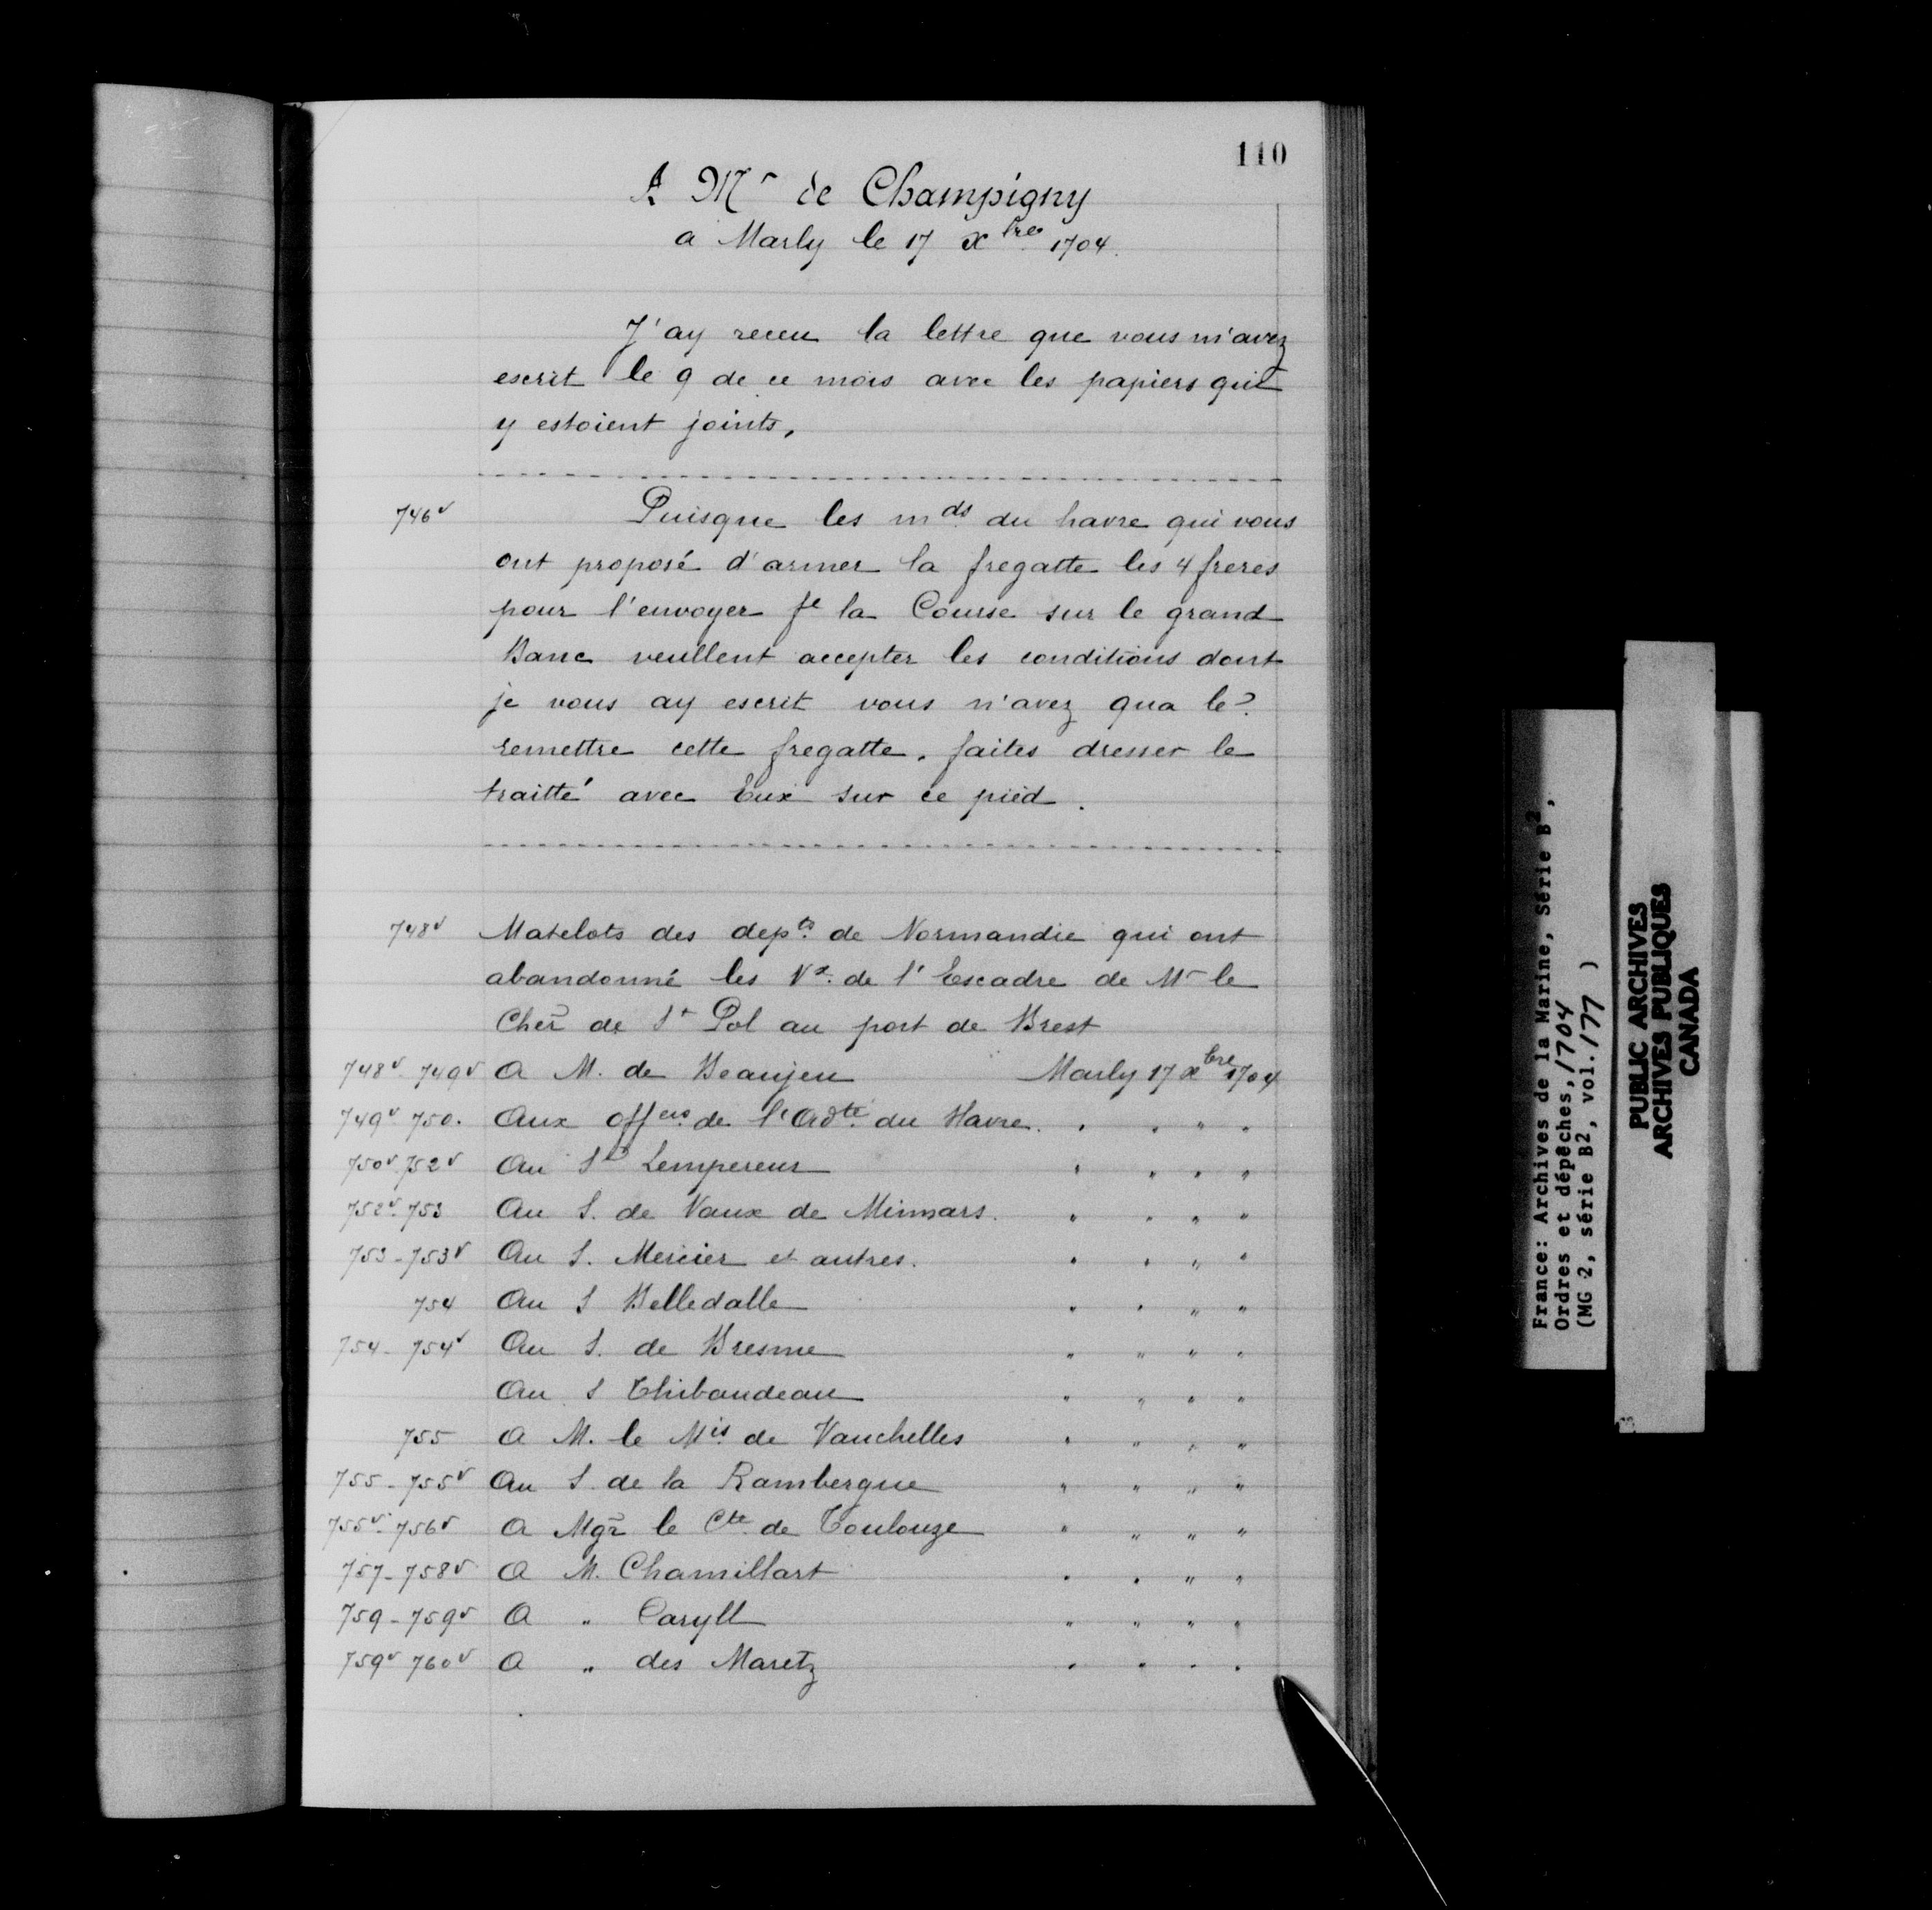 110
A Mr de Champigny
a Marly le 17 xbre 1704.
J'ay receu la lettre que vous m'avez
escrit le 9 de ce mois avec les papiers qui
y estoient joints.
746v Puisque les mds du havre qui vous
ont proposé d'armer la fregatte les 4 freres
pour l'envoyer fe la Course sur le grand
Banc veullent accepter les conditions dont
je vous ay escrit vous n'avez qua le?
remettre cette fregatte. faites dresser le
traitté avec Eux sur ce pied.
748v Matelots des depts de Normandie qui ont
abandonné les Vx de l'Escadre de Mr le
Cher de St Pol au port de Brest
748v-749v A M. de Beaujeu Marly 17 xbre 1704
749v-750. Aux offers de l'Adté du Havre. " " " "
750v-752v Au Sr Lempereur " " " "
752v-753 Au S. de Vaux de Minmars. " " " "
753-753v Au S. Mercier et autres. " " " "
754 Au S Belledalle " " " "
754-754v Au S. de Bresme " " " "
Au S Thibaudeau " " " "
755 A M. le Mis de Vauchelles " " " "
755-755v Au S. de la Rambergue " " " "
755v-756v A Mgr le Cte de Toulouze " " " "
757-758v A M. Chamillart " " " "
759-759v A " Caryll " " " "
759v-760v A " des Maretz " " " "
France: Archives de la Marine, Série B2,
Ordres et dépêches, 1704
(MG 2, série B2, vol. 177 )
PUBLIC ARCHIVES
ARCHIVES PUBLIQUES
CANADA